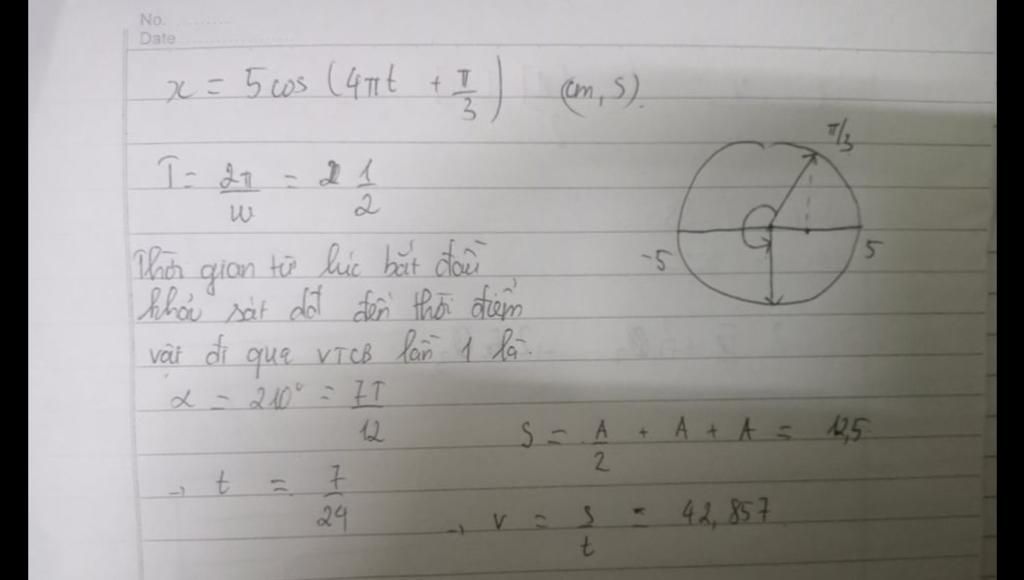 No.
Date
x = 5cos (4πt + π/3) (cm, s).
T = 2π/w = 1/2
π/3
-5
5
Thời gian từ lúc bắt đầu
khảo sát đến thời điểm
vật đi qua VTCB lần 1 là.
α = 210° = 7T/12
S = A/2 + A + A = 12,5
→ t = 7/24
→ v = s/t = 42,857